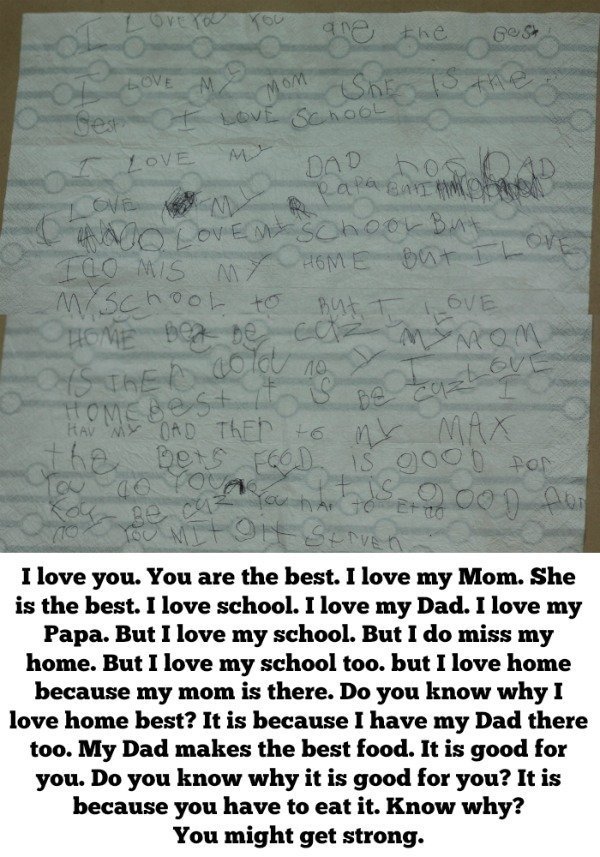 I LOVE YOU YOU are the Best
I LOVE MY MOM She IS the
Best I LOVE SCHOOL
I LOVE MY DAD
LOVE MY Papa
LOVE MY SCHOOL But
I do MIS MY HOME But I LOVE
MY SCHOOL to But I LOVE
HOME BE cuz MY MOM
IS THER YI LOVE
HOME BEST It IS BE cuz I
HAV MY DAD THER to MY MAX
the BeTs FOOD IS gOOD FOr
You do YOU It IS gOOD For
You BE cuz You hav TO
YOU MIT GIt
I love you. You are the best. I love my Mom. She
is the best. I love school. I love my Dad. I love my
Papa. But I love my school. But I do miss my
home. But I love my school too. but I love home
because my mom is there. Do you know why I
love home best? It is because I have my Dad there
too. My Dad makes the best food. It is good for
you. Do you know why it is good for you? It is
because you have to eat it. Know why?
You might get strong.